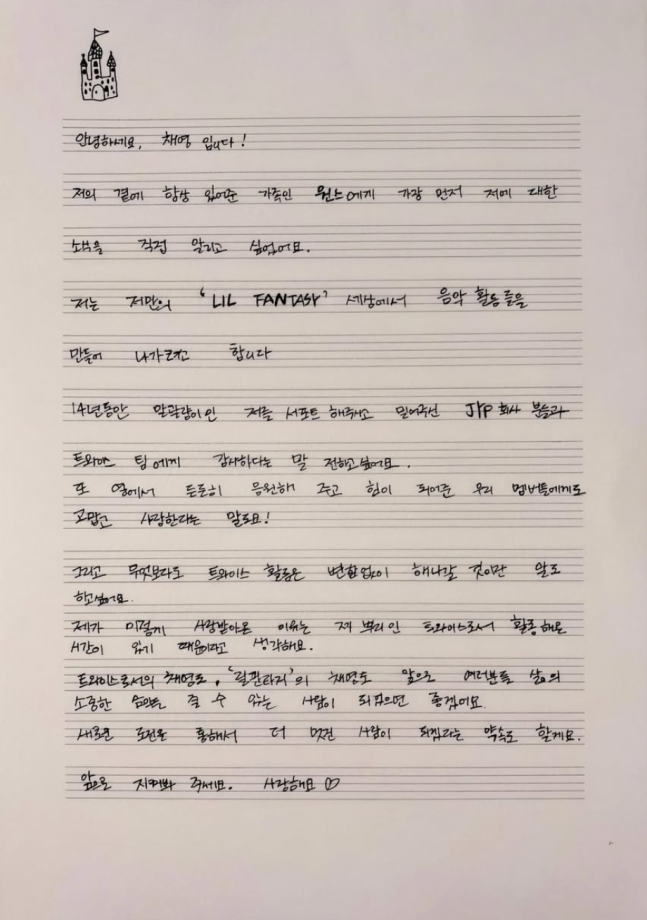 안녕하세요, 채영 입니다!
저의 곁에 항상 있어준 가족인 원스에게 가장 먼저 저에 대한
소식을 직접 알리고 싶었어요.
저는 저만의 'LIL FANTASY' 세상에서 음악 활동들을
만들어 나가려고 합니다
14년동안 말괄량이인 저를 서포트 해주시고 믿어주신 JYP 회사 분들과
트와이스 팀에게 감사하다는 말 전하고 싶어요.
또 옆에서 든든히 응원해 주고 힘이 되어준 우리 멤버들에게도
고맙고 사랑한다는 말도요!
그리고 무엇보다도 트와이스 활동은 변함없이 해나갈 것이란 말도
하고싶어요.
제가 이렇게 사랑받아온 이유는 제 뿌리인 트와이스로서 활동해온
시간이 있기 때문이라고 생각해요.
트와이스로서의 채영도, '릴판타지'의 채영도 앞으로 여러분들 삶의
소중한 음악을 줄 수 있는 사람이 되었으면 좋겠어요
새로운 도전을 통해서 더 멋진 사람이 되겠다는 약속도 할게요.
앞으로 지켜봐 주세요. 사랑해요 ♡